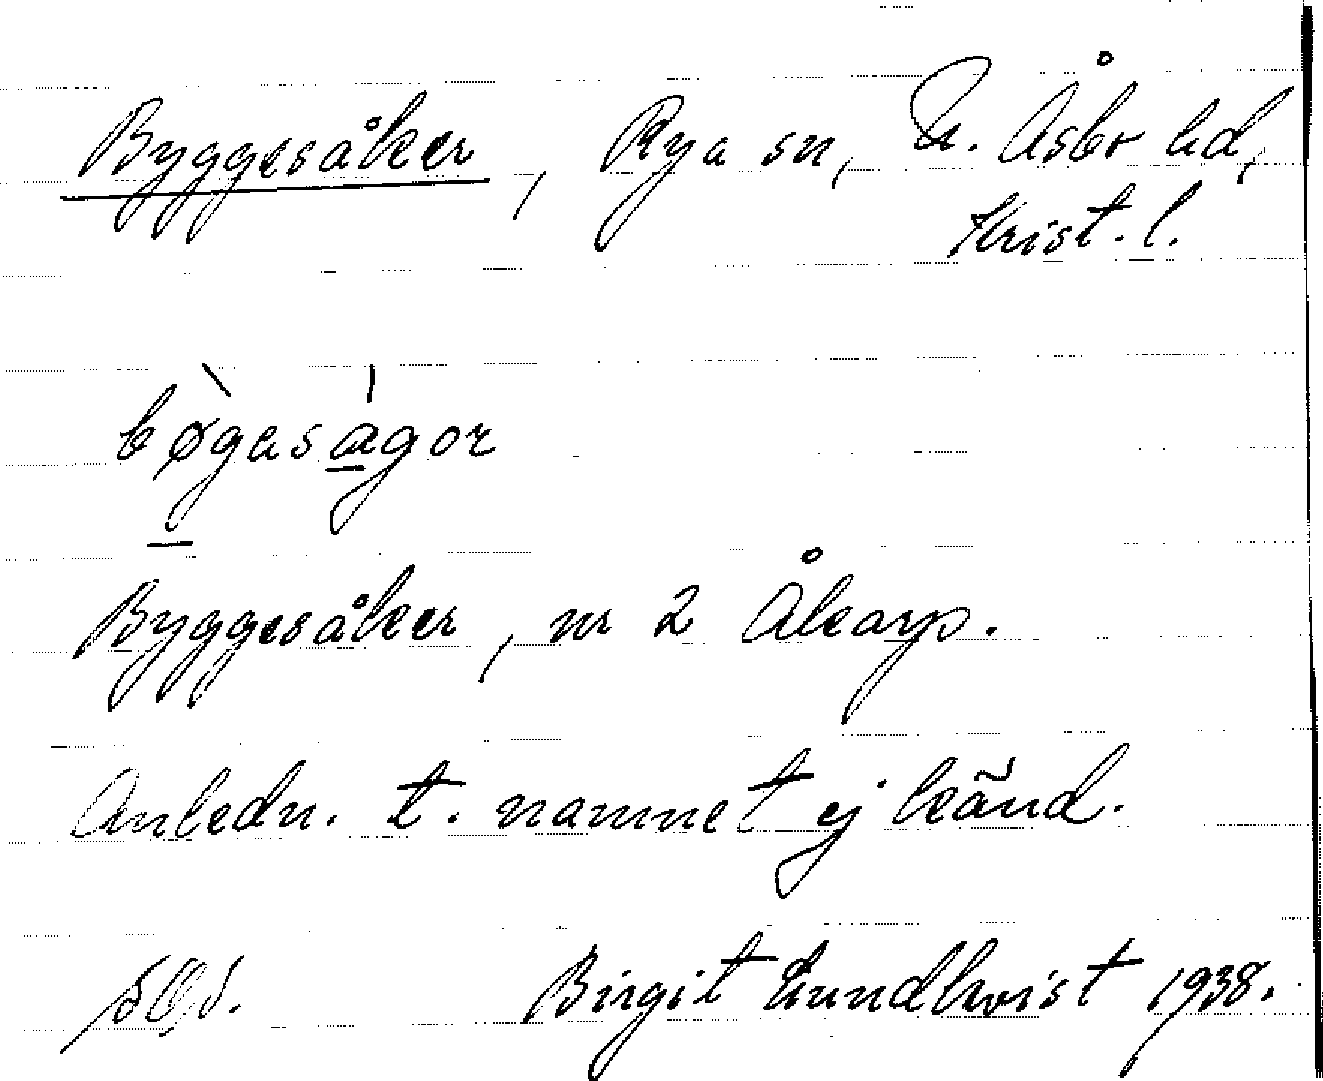 Byggesåker, Rya sn, N. Åsbo hd,
Krist. l.
bøgasågor
Byggesåker, nr 2 Åkarp.
Anledn. t. namnet ej känd.
Birgit Lundkvist 1938.